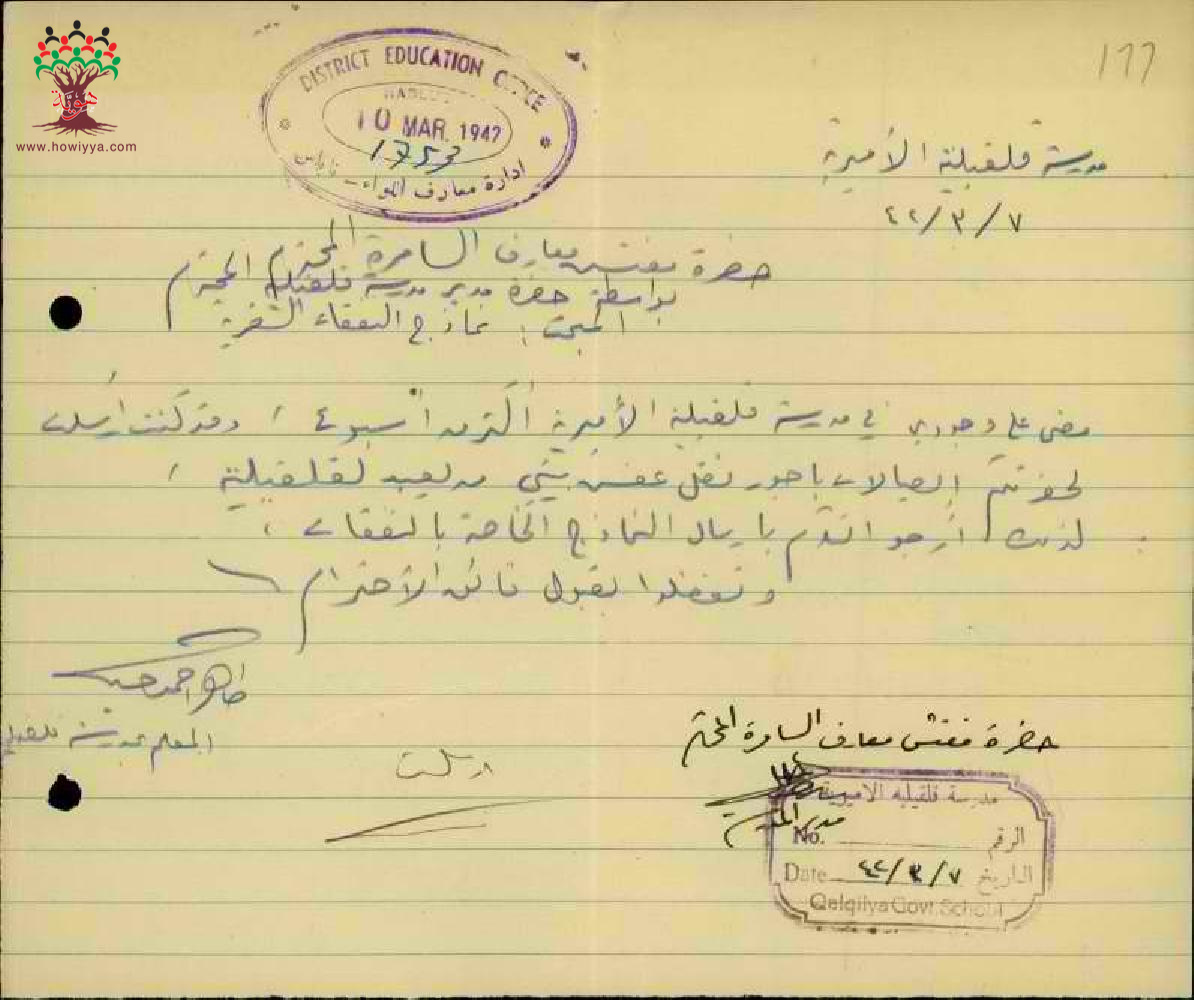 www.howiyya.com
DISTRICT EDUCATION OFFICE
NABLUS
10 MAR. 1942
1753
ادارة معارف اللواء - نابلس
177
مدرسة قلقيلية الأميرية
٤٢/٣/٧
حضرة مفتش معارف السامرة المحترم
بواسطة حضرة مدير مدرسة قلقيلية المحترم
المبحث: نماذج النفقات السفرية
مضى على وجودي في مدرسة قلقيلية الأميرية أكثر من أسبوع، وقد كنت أرسلت
لحضرتكم إيصالات بأجور نقل عفش بيتي من لقلقيلية،
لذلك أرجو التكرم بإرسال النماذج الخاصة بالنفقات،
وتفضلوا بقبول فائق الاحترام
طاهر احمد
المعلم بمدرسة قلقيلية
ارسلت
حضرة مفتش معارف السامرة المحترم
مدير المدرسة
مدرسة قلقيليه الاميرية
الرقم No.
التاريخ ٤٢/٣/٧ Date
Qalqilya Govt. School